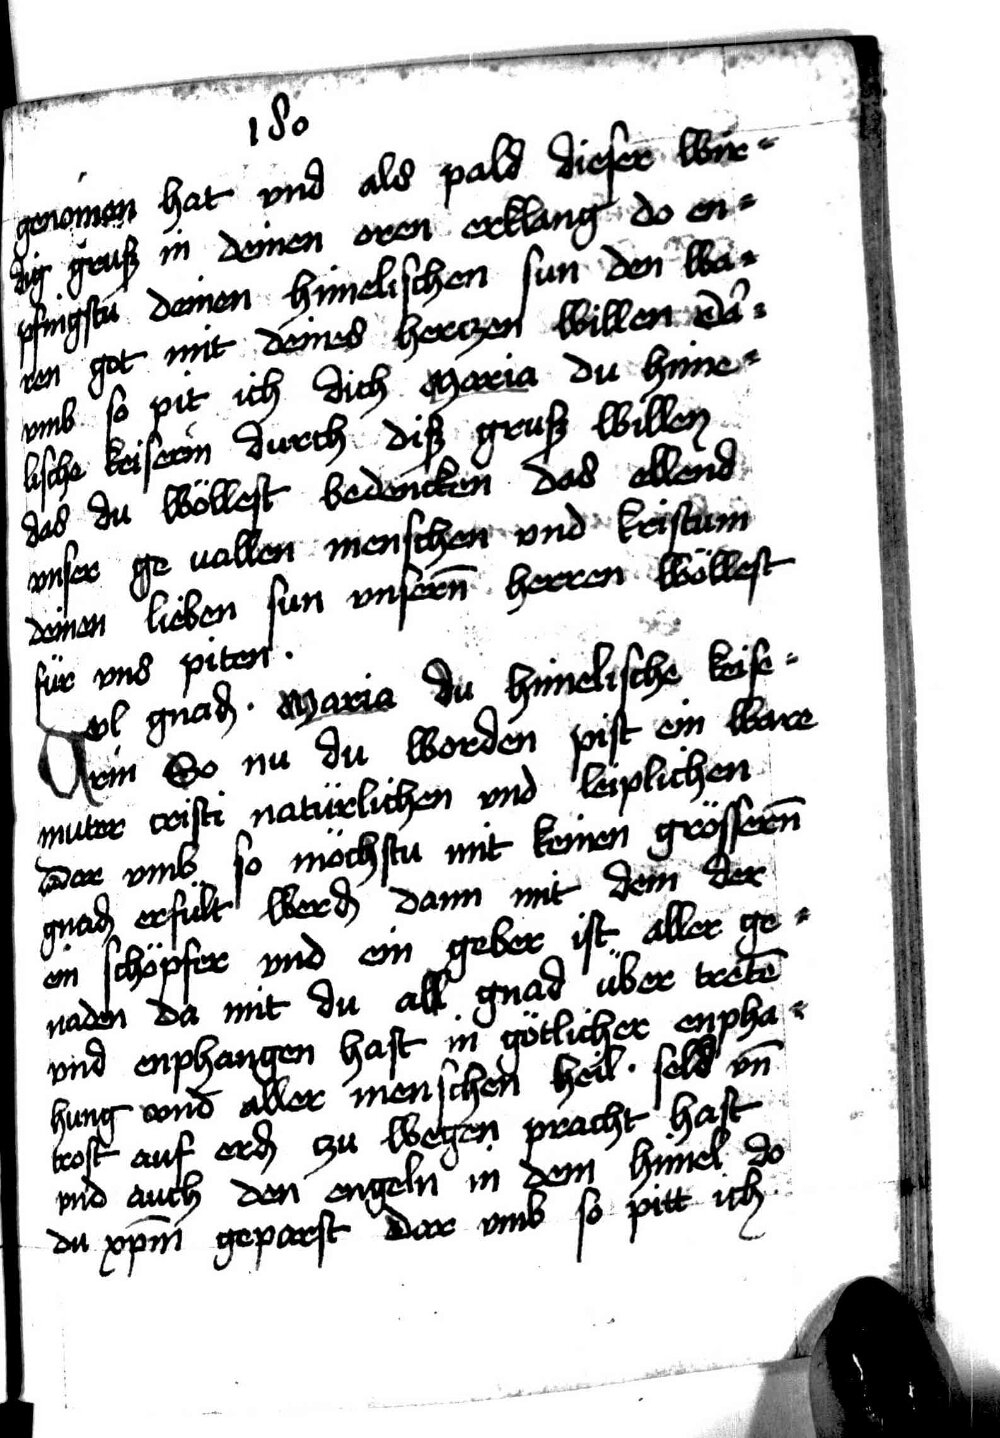 180
genomen hat vnd als pald dieser wir-
dig gruß in deinen oren erklang do en-
pfingstu deinen himelischen sun den wa-
ren got mit deines herczen willen Dar-
vmb so pit ich dich Maria du hime-
lische keiserin durch diß gruß willen
das du wöllest bedencken das ellend
vnser ge uallen menschen vnd kristum
deinen lieben sun vnsern̄ herren wöllest
für vns piten.
Vol gnad. Maria du himelische keise-
rin So nu du worden pist ein ware
muter cristi natürlichen vnd leiplichen
Dar vmb so möchstu mit keinen grössern̄
gnad erfült werd dann mit dem der
ein schöpfer vnd ein geber ist aller ge-
naden da mit du all gnad über tretē
vnd enphangen hast in götlicher enpha-
hung vnd aller menschen heil. seld vn̄
trost auf erd czu wegen pracht hast
vnd auch den engeln in dem himel do
du xp̄m geparst dar vmb so pitt ich